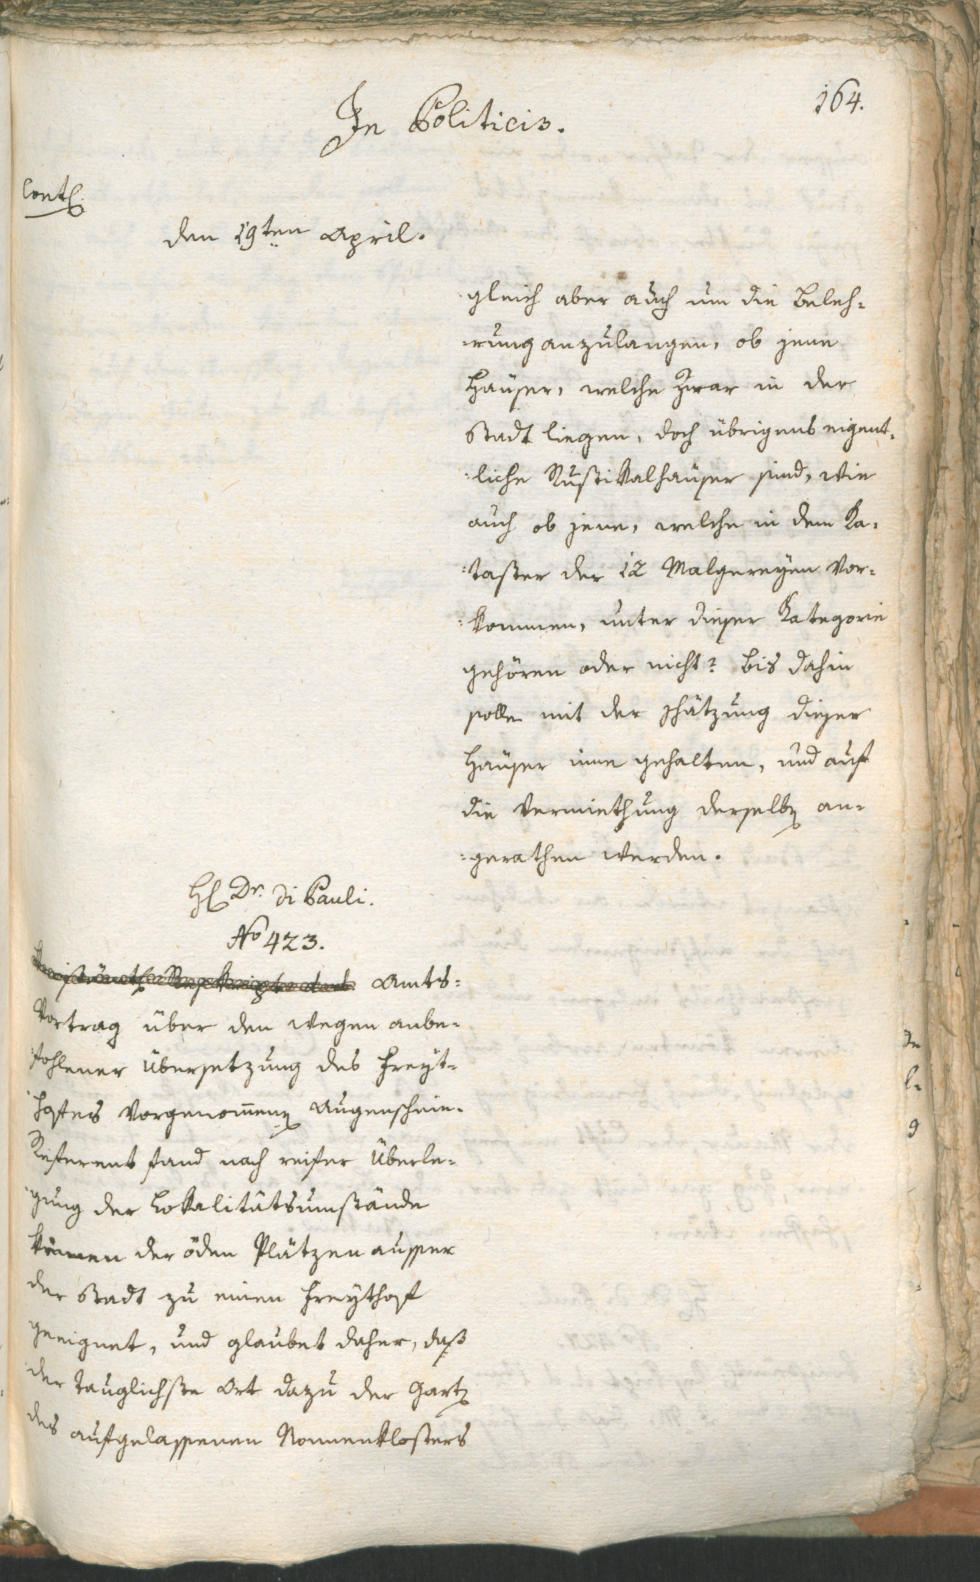 164.
In Politicis.
Cont.
den 19ten April.
gleich aber auch um die Beleh-
-rung anzulangen, ob jene
Häuser, welche zwar in der
Stadt liegen, doch übrigens eigent-
-liche Rustikalhäuser sind, wie
auch ob jene, welche in dem Ka-
-taster der 12 Malgereyen vor-
-kommen, unter dieser Kategorie
gehören oder nicht? Bis dahin
solle mit der Schätzung dieser
Häuser inne gehalten, und auf
die Vermiethung derselben an-
-gerathen werden.
H. Dr. Di Pauli.
No 423.
Amts-
Vortrag über den wegen anbe-
fohlener Übersetzung des Freyt-
hofes vorgenommenen Augenschein.
Referent fand nach reifer Überle-
gung der Lokalitätsumstände
keinen der öden Plätzen ausser
der Stadt zu einen Freythof
geeignet, und glaubet daher, daß
der tauglichste Ort dazu der Garten
des aufgelassenen Nonnenklosters